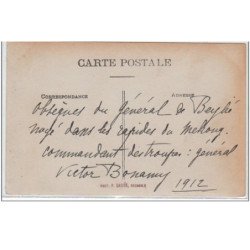 CARTE POSTALE
CORRESPONDANCE ADRESSE
Obsèques du Général de Beylié
noyé dans les rapides du Mékong.
commandant des troupes : général
Victor Bonamy 1912